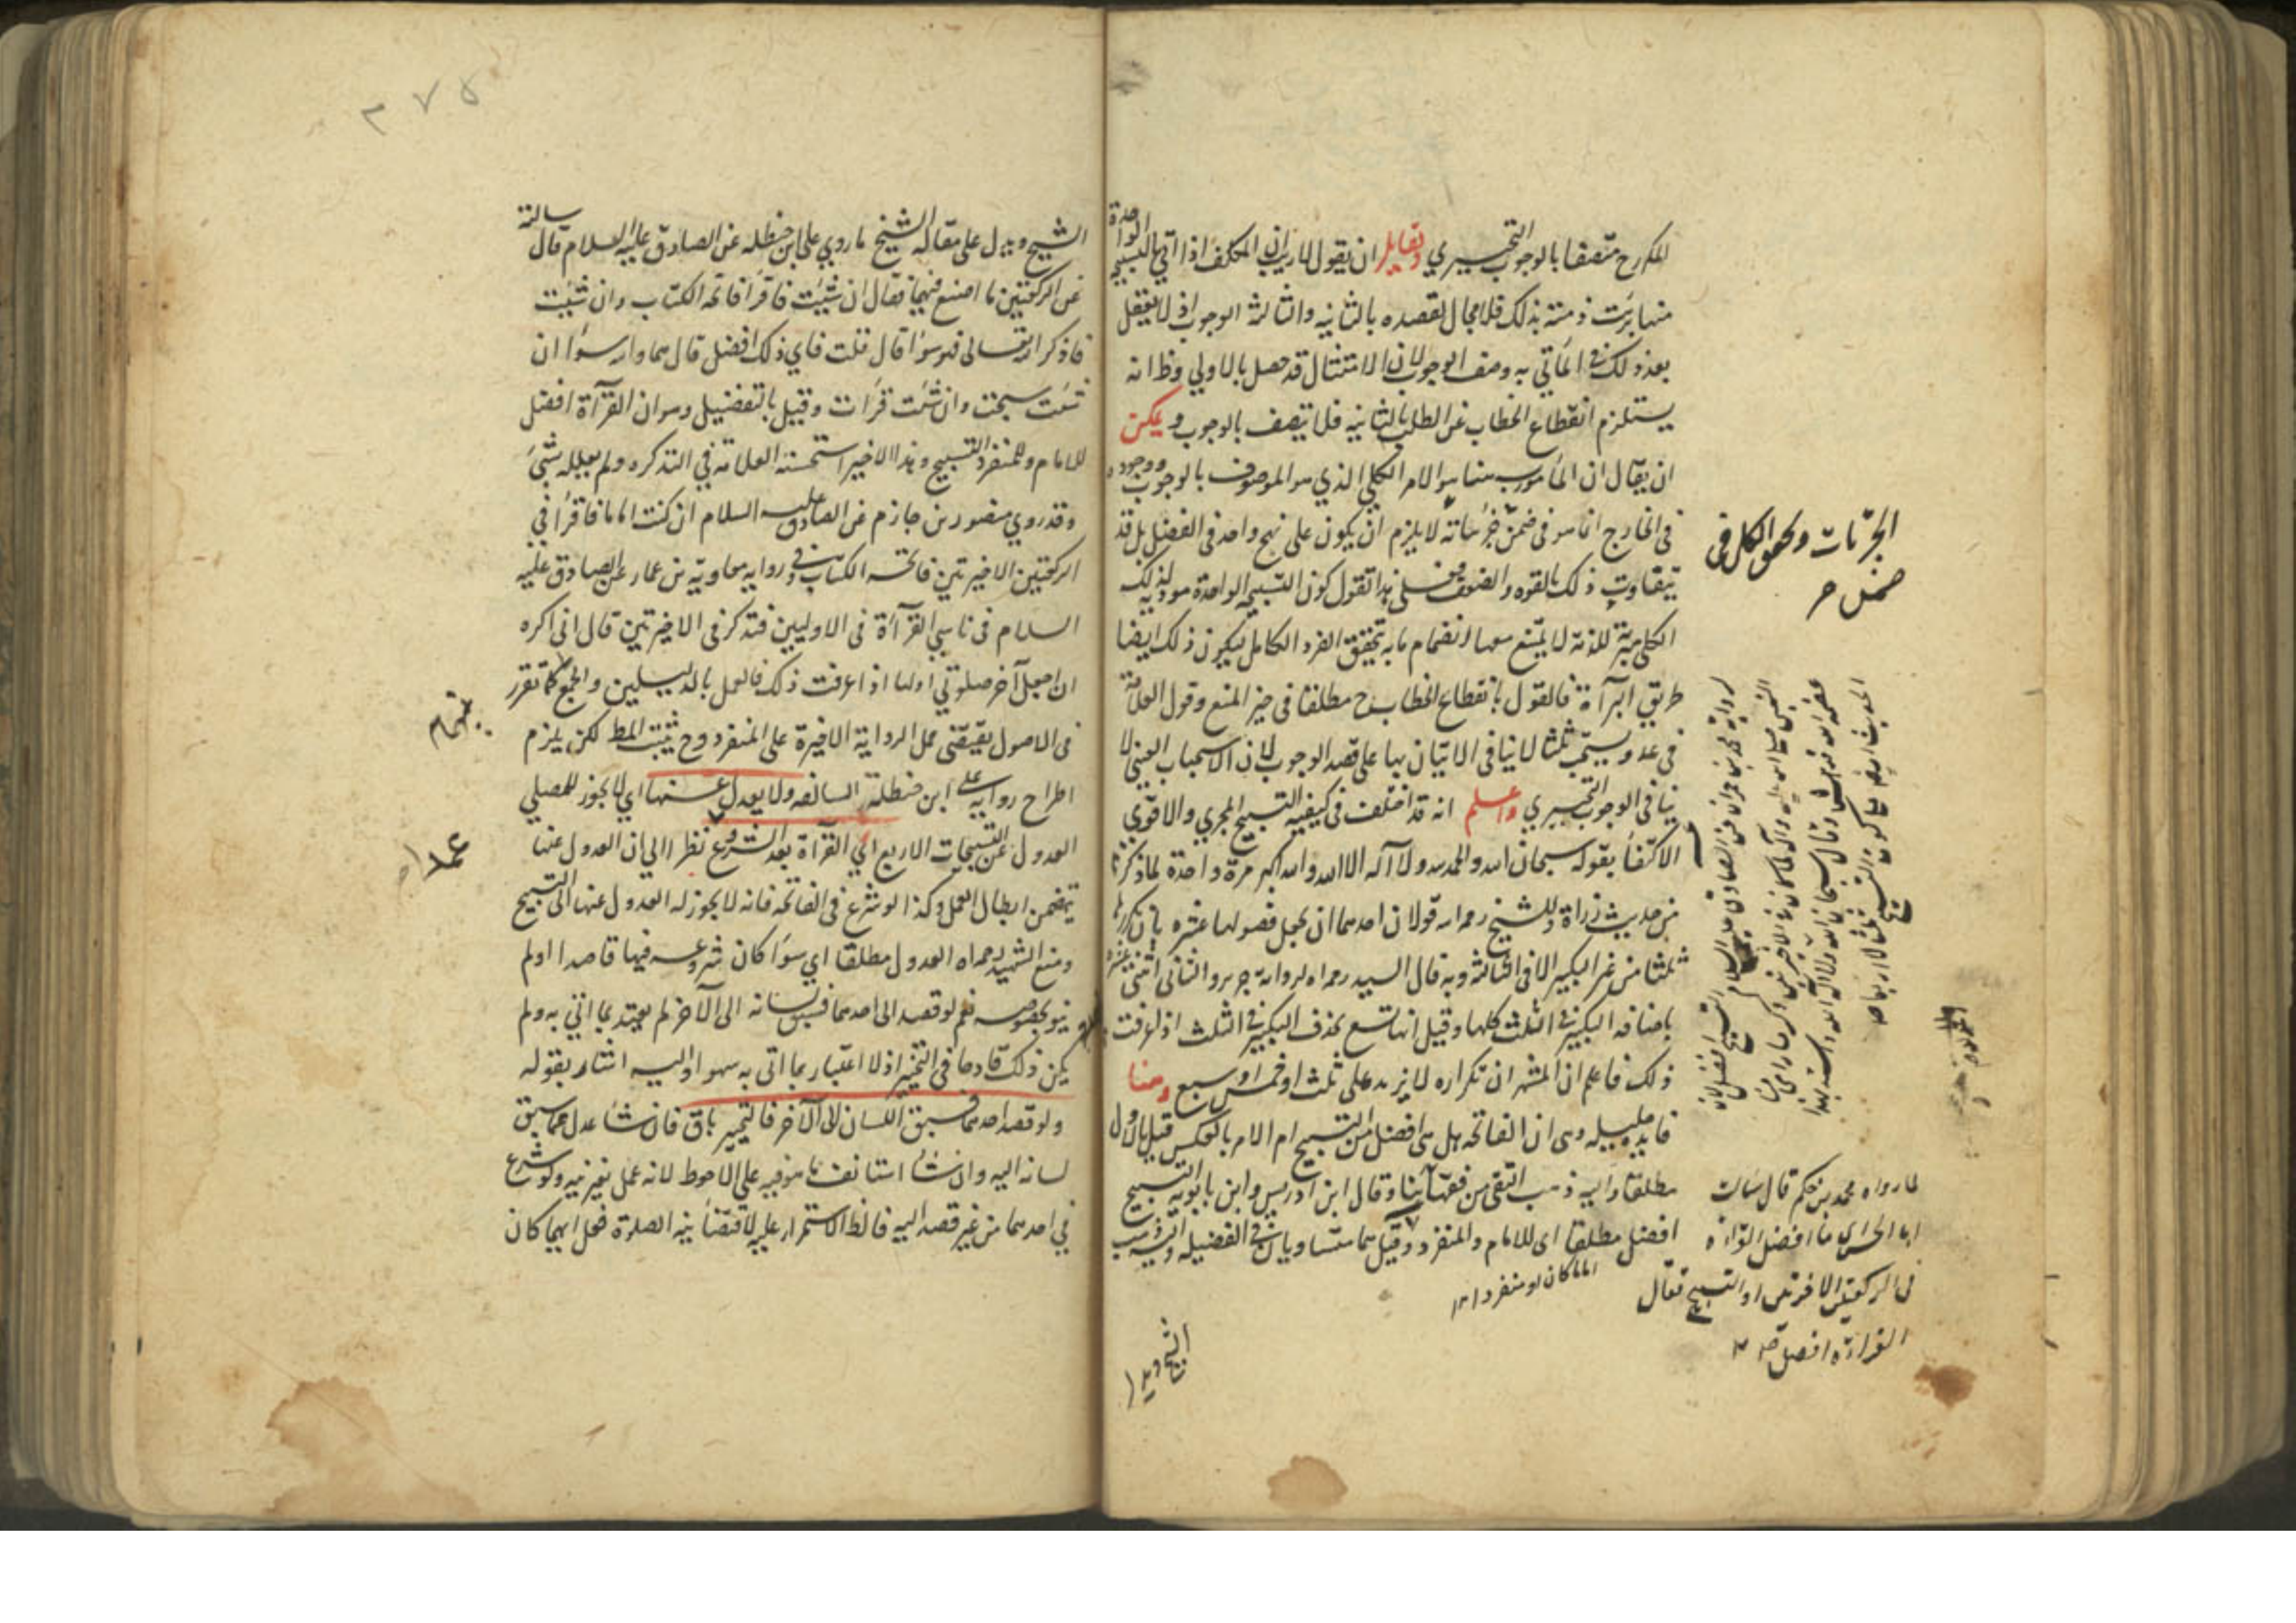 للمكرح متصفا بالوجوب التخييري ولقايل ان يقول لما ريب ان المكلف اذا اتي بالتسبيحة الواحدة
منها برئت ذمته بذلك فلا مجال لقصده بالثانيه والثالثة الوجوب اذ لا يعقل
بعد ذلك في المأتي به وصف الوجوب لان الامتثال قد حصل بالاولي وظ انه
يستلزم انقطاع الخطاب عن الطلب بالثانيه فلا تتصف بالوجوب ويمكن
ان يقال ان المأمور به هنا هو الامر الكلي الذي هو الموصوف بالوجوب ووجوده
في الخارج انما هو في ضمن جزئياته لا يلزم ان يكون علي نهج واحد في الفضل بل قد
يتفاوت ذلك بالقوه والضعف فعلي هذا تقول كون التسبيحة الواحدة مودية لذلك
الكلي مبرئة للذمة لا يمنع معها انضمام ما به تحقق الفرد الكامل ليكون ذلك ايضا
طريق البرآءة فالقول بانقطاع الخطاب ح مطلقا في حيز المنع وقول العلامة
في عد ويستحب ثلثا لا ينافي الاتيان بها علي قصد الوجوب لان الاستحباب العيني لا
ينافي الوجوب التخييري واعلم انه قد اختلف في كيفية التسبيح المجزي والاقوي
الاكتفأ بقوله سبحان الله والحمد لله ولا اله الا الله والله اكبر مرة واحدة لما ذكرناه
من حديث زرارة وللشيخ رحمه الله قولان احدهما ان يجعل فصولها عشره بان يكررها
ثلثا من غير التكبير الا في الثالثة وبه قال السيد رحمه الله لرواية حريز والثاني اثنتي عشره
باضافه التكبير في الثلث كلها وقيل انها تسع بحذف التكبير في الثلث اذا عرفت
ذلك فاعلم ان المشهور ان تكراره لا يزيد علي ثلث او خمس او سبع وهنا
فايده جليله وهي ان الفاتحه هل هي افضل من التسبيح ام الامر بالعكس قيل بالاول
مطلقا واليه ذهب التقي من فقهائنا وقال ابن ادريس وابن بابويه التسبيح
افضل مطلقا اي للامام والمنفرد وقيل هما متساويان في الفضيله واليه ذهب
اماما كان او منفردا ١٢
الشيخ ويدل
الجزئيات وتحقق الكلي في
ضمن
لرواية محمد بن عمران عن الصادق عليه السلام التسبيح افضل لان
النبي صلي الله عليه وآله لما كان في الاخيرتين ذكر ما راي من
عظمة الله فدهش وقال سبحان الله والحمد لله ولا اله الا الله والله اكبر
لما رواه محمد بن حكيم قال سالت
ابا الحسن ع ما افضل القراءة
في الركعتين الاخيرتين او التسبيح فقال
القراءة افضل
٢٧٥
الشيخ ويدل علي مقالة الشيخ ما روي علي ابن حنظله عن الصادق عليه السلام قال سالته
عن الركعتين ما اصنع فيهما فقال ان شئت فاقرأ فاتحة الكتاب وان شئت
فاذكر الله تعالي فهو سواء قال قلت فاي ذلك افضل قال هما والله سواء ان
شئت سبحت وان شئت قرأت وقيل بالتفضيل وهو ان القرآءة افضل
للامام وللمنفرد التسبيح وهذا الاخير استحسنه العلامة في التذكره ولم يعلله بشئ
وقد روي منصور بن حازم عن الصادق عليه السلام ان كنت اماما فاقرأ في
الركعتين الاخيرتين فاتحة الكتاب وفي رواية معاوية بن عمار عن الصادق عليه
السلام في ناسي القرآءة في الاوليين فتذكر في الاخيرتين قال اني اكره
ان اجعل آخر صلوتي اولها اذا عرفت ذلك فالعمل بالدليلين والجمع كما تقرر
في الاصول يقتضي حمل الرواية الاخيرة علي المنفرد وح يثبت المط لكن يلزم
اطراح رواية علي ابن حنظلة السالفه ولا يعدل عنها اي لا يجوز للمصلي
العدول عن التسبيحات الاربع الي القرآءة بعد الشروع نظرا الي ان العدول عنها
يتضمن ابطال العمل وكذا لو شرع في الفاتحه فانه لا يجوز له العدول عنها الي التسبيح
ومنع الشهيد رحمه الله العدول مطلقا اي سواء كان شروعه فيها قاصدا اولم
ينو بخصوصه نعم لو قصد الي احدهما فسبق لسانه الي الآخر لم يعتد بما اتي به ولم
يكن ذلك قادحا في التخيير اذ لا اعتبار بما اتي به سهوا واليه اشار بقوله
ولو قصد احدهما فسبق اللسان الي الآخر فالتخيير باق فان شاء عدل عما سبق
لسانه اليه وان شاء استانف ما هو فيه علي الاحوط لانه عمل بغير نية ولو شرع
في احدهما من غير قصد اليه فالظ الاستمرار عليه لاقتضاء نية الصلوة فعل ايهما كان